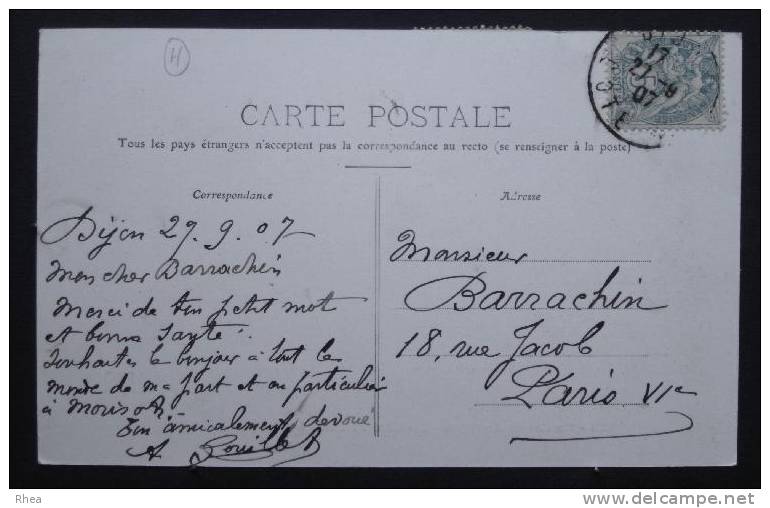 H
CARTE POSTALE
Tous les pays étrangers n'acceptent pas la correspondance au recto (se renseigner à la poste)
Correspondance
Dijon 27.9.07
Mon cher Barrachin
Merci de ton petit mot
et bonne santé.
Souhaites le bonjour à tout le
monde de ma part et en particulier
à Morisot.
Ton amicalement dévoué
A
Adresse
Monsieur
Barrachin
18, rue Jacob
Paris VIe
Rhea
delcampe.net